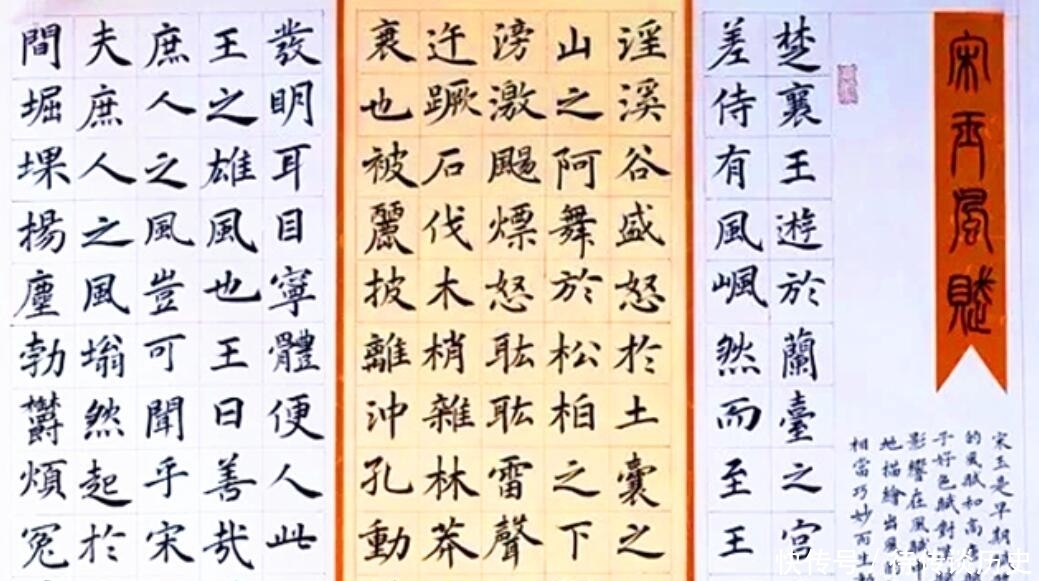 宋玉風賦
宋玉是早期
的風賦和高
子好色賦對
影響在風賦
地描繪出風
相當巧妙而上
楚襄王遊於蘭臺之宮
差侍有風颯然而至王
淫溪谷盛怒於土囊之
山之阿舞於松柏之下
滂激颺熛怒耾耾雷聲
迕蹶石伐木梢雜林莽
衰也被麗披離沖孔動
發明耳目寧體便人此
王之雄風也王曰善哉
庶人之風豈可聞乎宋
夫庶人之風塕然起於
間堀堁揚塵勃鬱煩冤
快传号